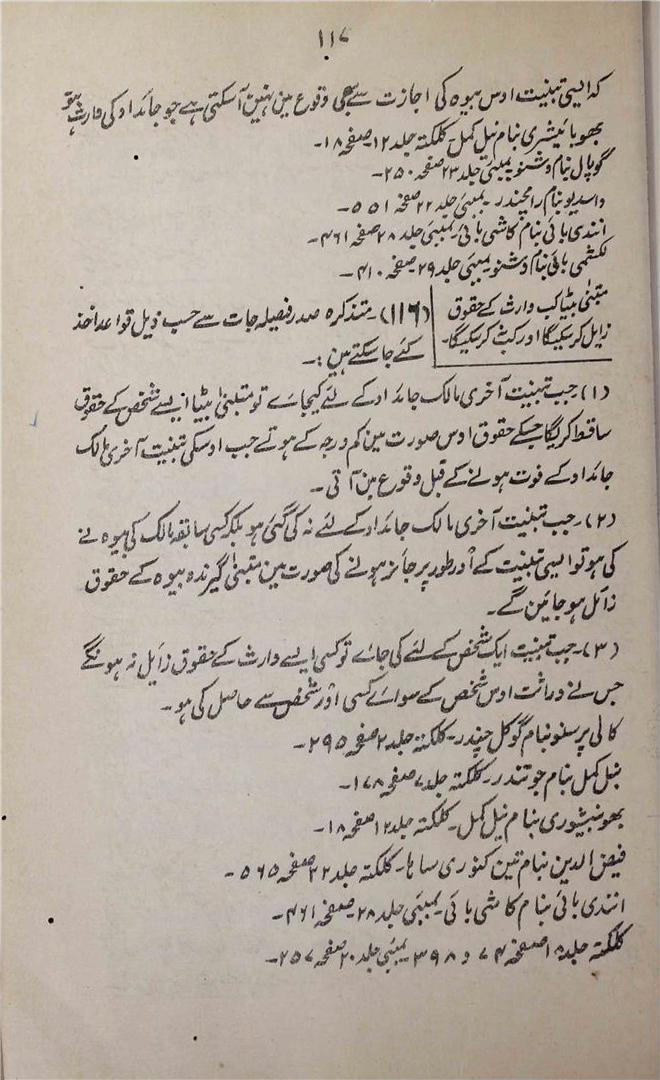 ۱۱۷
کہ ایسی تبنیت اوس بیوہ کی اجازت سے بھی وقوع مین نہین آسکتی ہے جو جائداد کی وارث ہو
بھوبائیشری بنام نیل کمل۔ کلکتہ جلد ۱۲۔ صفحہ ۱۸۔
گوپال بنام وشنو۔ بمبئی جلد ۲۳ صفحہ ۲۵۰۔
واسدیو بنام رامچندر۔ بمبئی جلد ۲۲ صفحہ ۵۵۱۔
انندی بائی بنام کاشی بائی۔ بمبئی جلد ۲۸ صفحہ ۴۶۱۔
لکشمی بائی بنام وشنو۔ بمبئی جلد ۲۹۔ صفحہ ۴۱۰۔
متبنیٰ بیٹا کب وارث کے حقوق
زایل کر سکیگا اور کب نکر سکیگا۔
(۱۱۶)۔ متذکرہ صدر فیصلہ جات سے حسب ذیل قواعد اخذ
کئے جا سکتے ہین :۔
(۱)۔ جب تبنیت آخری مالک جائداد کے لئے کیجاے تو متبنیٰ بیٹا ایسے شخص کے حقوق
ساقط کریگا جسکے حقوق اوس صورت مین کم درجہ کے ہوتے جب اوسکی تبنیت آخری مالک
جائداد کے فوت ہونے کے قبل وقوع مین آتی۔
(۲)۔ جب تبنیت آخری مالک جائداد کے لئے نہ کی گئی ہو بلکہ کسی سابقہ مالک کی بیوہ نے
کی ہو تو ایسی تبنیت کے اور طور پر جائز ہونے کی صورت مین متبنیٰ گیرندہ بیوہ کے حقوق
زائل ہو جائین گے۔
(۳)۔ جب تبنیت ایک شخص کے لئے کی جاے تو کسی ایسے وارث کے حقوق زایل نہ ہونگے
جس نے وراثت اوس شخص کے سواے کسی اور شخص سے حاصل کی ہو۔
کالی پرسنو بنام گوکل چندر۔ کلکتہ جلد ۲ صفحہ ۲۹۵۔
نیل کمل بنام جوتندر۔ کلکتہ جلد ۷ صفحہ ۱۷۸۔
بھونیشوری بنام نیل کمل۔ کلکتہ جلد ۱۲ صفحہ ۱۸۔
فیض الدین بنام تین کنوری ساہا۔ کلکتہ جلد ۲۲ صفحہ ۵۶۵۔
انندی بائی بنام کاشی بائی۔ بمبئی جلد ۲۸۔ صفحہ ۴۶۱۔
کلکتہ جلد ۱۸ صفحہ ۷۴ و ۳۹۸۔ بمبئی جلد ۲۰ صفحہ ۲۵۷۔